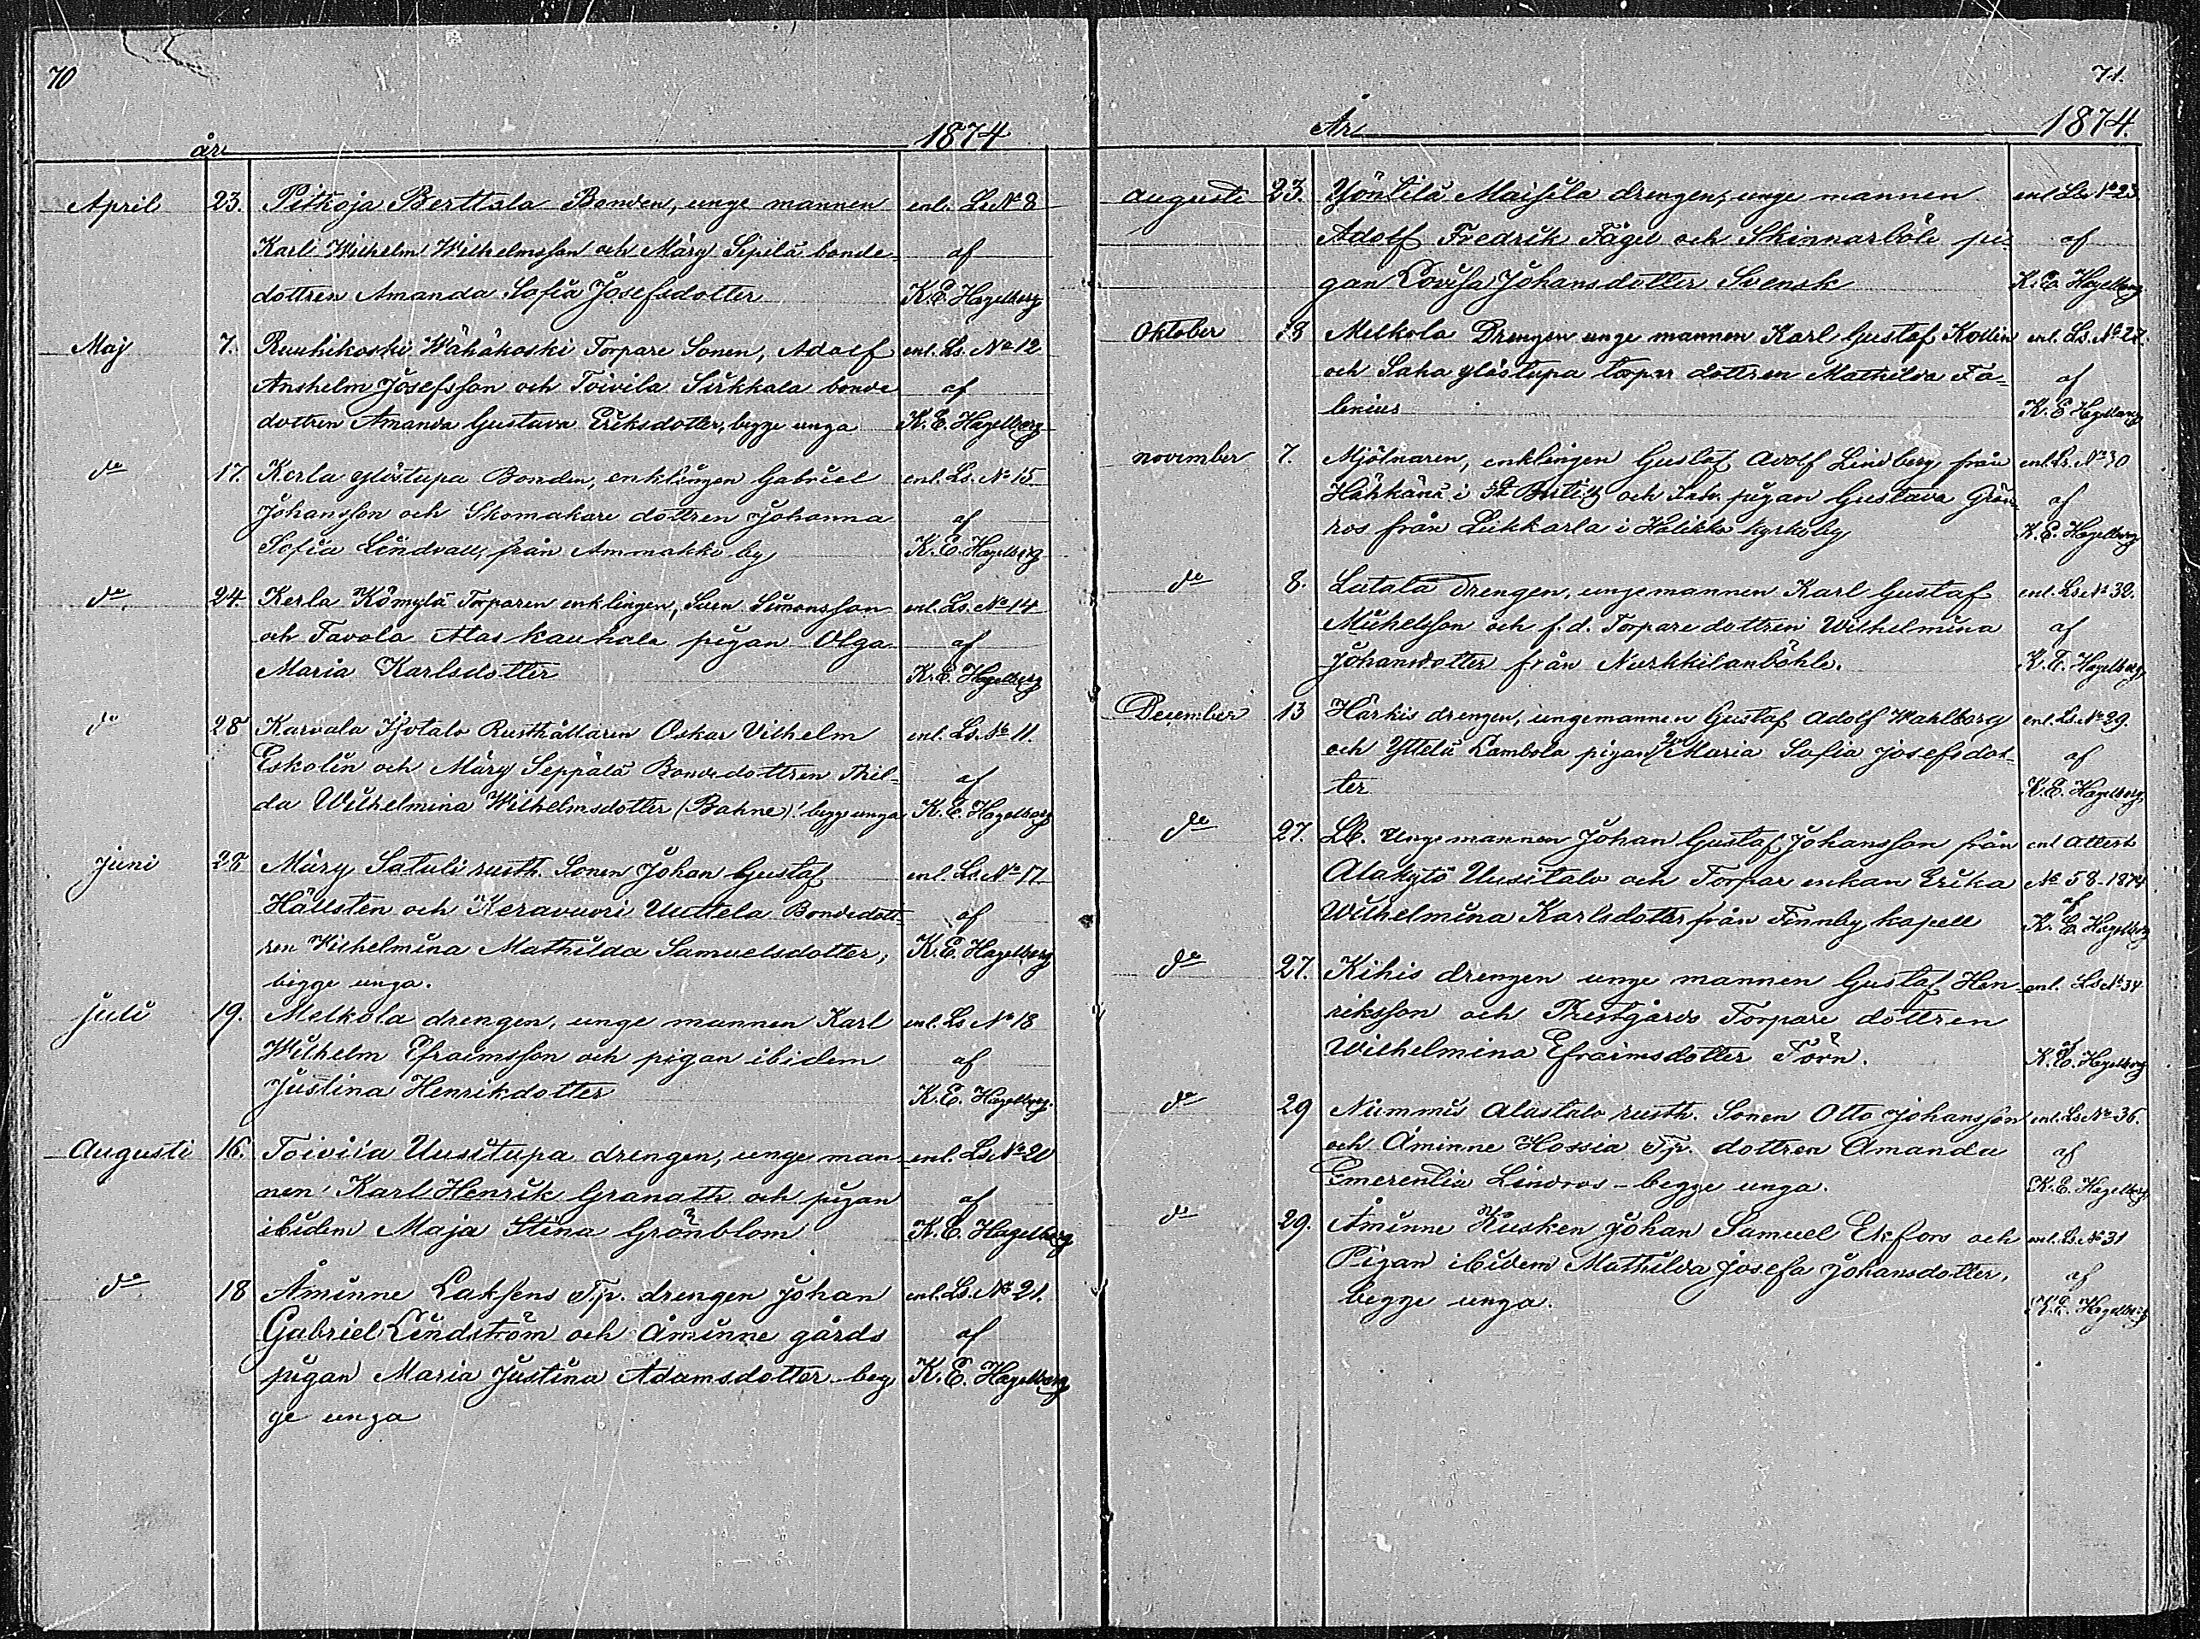 70
år 1874
April 23. Pitkoja Berttala Bonden, unge mannen enl. Ls. No 8
Karl Wilhelm Wilhelmsson och Märy Sipilä bonde- af
dottren Amanda Sofia Josefsdotter K. E. Hagelberg
Maj 7. Ruuhikoski Wähäkoski Torpare Sonen, Adolf enl. Ls. No 12
Anshelm Josefsson och Toivila Sirkkala bonde af
dottren Amanda Gustava Eriksdotter, begge unga K. E. Hagelberg
do 17. Kerla Ylöstupa Bonden, enklingen Gabriel enl. Ls. No 15
Johansson och Skomakare dottren Johanna af
Sofia Lindvall, från Ammakki by K. E. Hagelberg
do 24. Kerla Kömylä Torparen enklingen, Sven Simonsson enl. Ls. No 14
och Tavola Alas kauhala pigan Olga af
Maria Karlsdotter K. E. Hagelberg
do 28 Karvala Isotalo Rusthållaren Oskar Vilhelm enl. Ls. No 11.
Eskolin och Märy Seppälä Bondedottren Thil- af
da Wilhelmina Wilhelmsdotter (Bahne)! begge unga K. E. Hagelberg
Juni 28 Märy Satuli rusth. Sonen Johan Gustaf enl. Ls. No 17
Hällsten och Keravuori Uuttela Bondedott- af
ren Wilhelmina Mathilda Samuelsdotter, K. E. Hagelberg
begge unga.
Juli 19. Melkola drengen, unge mannen Karl enl. Ls No 18
Wilhelm Efraimsson och pigan ibidem af
Justina Henrikdotter K. E. Hagelberg.
Augusti 16. Toivila Uusitupa drengen, unge man- enl. Ls No 20
nen Karl Henrik Granath och pigan af
ibidem Maja Stina Grönblom K. E. Hagelberg
do 18 Åminne Laksens Tp. drengen Johan enl. Ls. No 21.
Gabriel Lindström och Åminne gårds af
pigan Maria Justina Adamsdotter beg K. E. Hagelberg
ge unga
71.
År 1874.
Augusti 23. Yöntilä Maisila drengen, unge mannen enl. Ls No 23
Adolf Fredrik Fäger och Skinnarböle pi- af
gan Lovisa Johansdotter Svensk K. E. Hagelberg
Oktober 18 Melkola Drengen unge mannen Karl Gustaf Kollin enl. Ls. No 27.
och Saha Ylöstupa torpar dottren Mathilda Fa- af
lenius K. E. Hagelberg
November 7. Mjölnaren, enklingen Gustaf Adolf Lindberg från enl. Ls. No 30
Härkäni i St Bertils och Inh. pigan Gustava Grön af
ros från Leikkarla i Halikko kyrkoby K. E. Hagelberg
do 8. Lutala Drengen, unge mannen Karl Gustaf enl. Ls No 32.
Mickelsson och f. d. Torpare dottren Wilhelmina af
Johansdotter från Nurkkilanböhle. K. E. Hagelberg
December 13 Härkis drengen, ungemannen Gustaf Adolf Wahlborg enl. Ls. No 29.
och Yttelä Lambola pigan Maria Sofia Josefsdot- af
ter K. E. Hagelberg
do 27. LB. Unge mannen Johan Gustaf Johansson från enl Attest
Alakytö Uusitalo och Torpar enkan Erika No 58. 1874
af
Wilhelmina Karlsdotter från Finnby kapell K. E. Hagelberg
do 27. Kihis drengen unge mannen Gustaf Hen- enl. Ls No 34
riksson och Prestgårds Torpare dottren
Wilhelmina Efraimsdotter Törn. af K. E. Hagelberg
do 29 Nummis Alastalo rusth. Sonen Otto Johansson enl. Ls No 36.
och Åminne Hossia Tp. dottren Amanda af
Emerentia Lindros - begge unga. K. E. Hagelberg
do 29. Åminne Kusken Johan Samuel Ekfors och enl. Ls. No 31
Pigan ibidem Mathilda Josefa Johansdotter, af
begge unga. K. E. Hagelberg